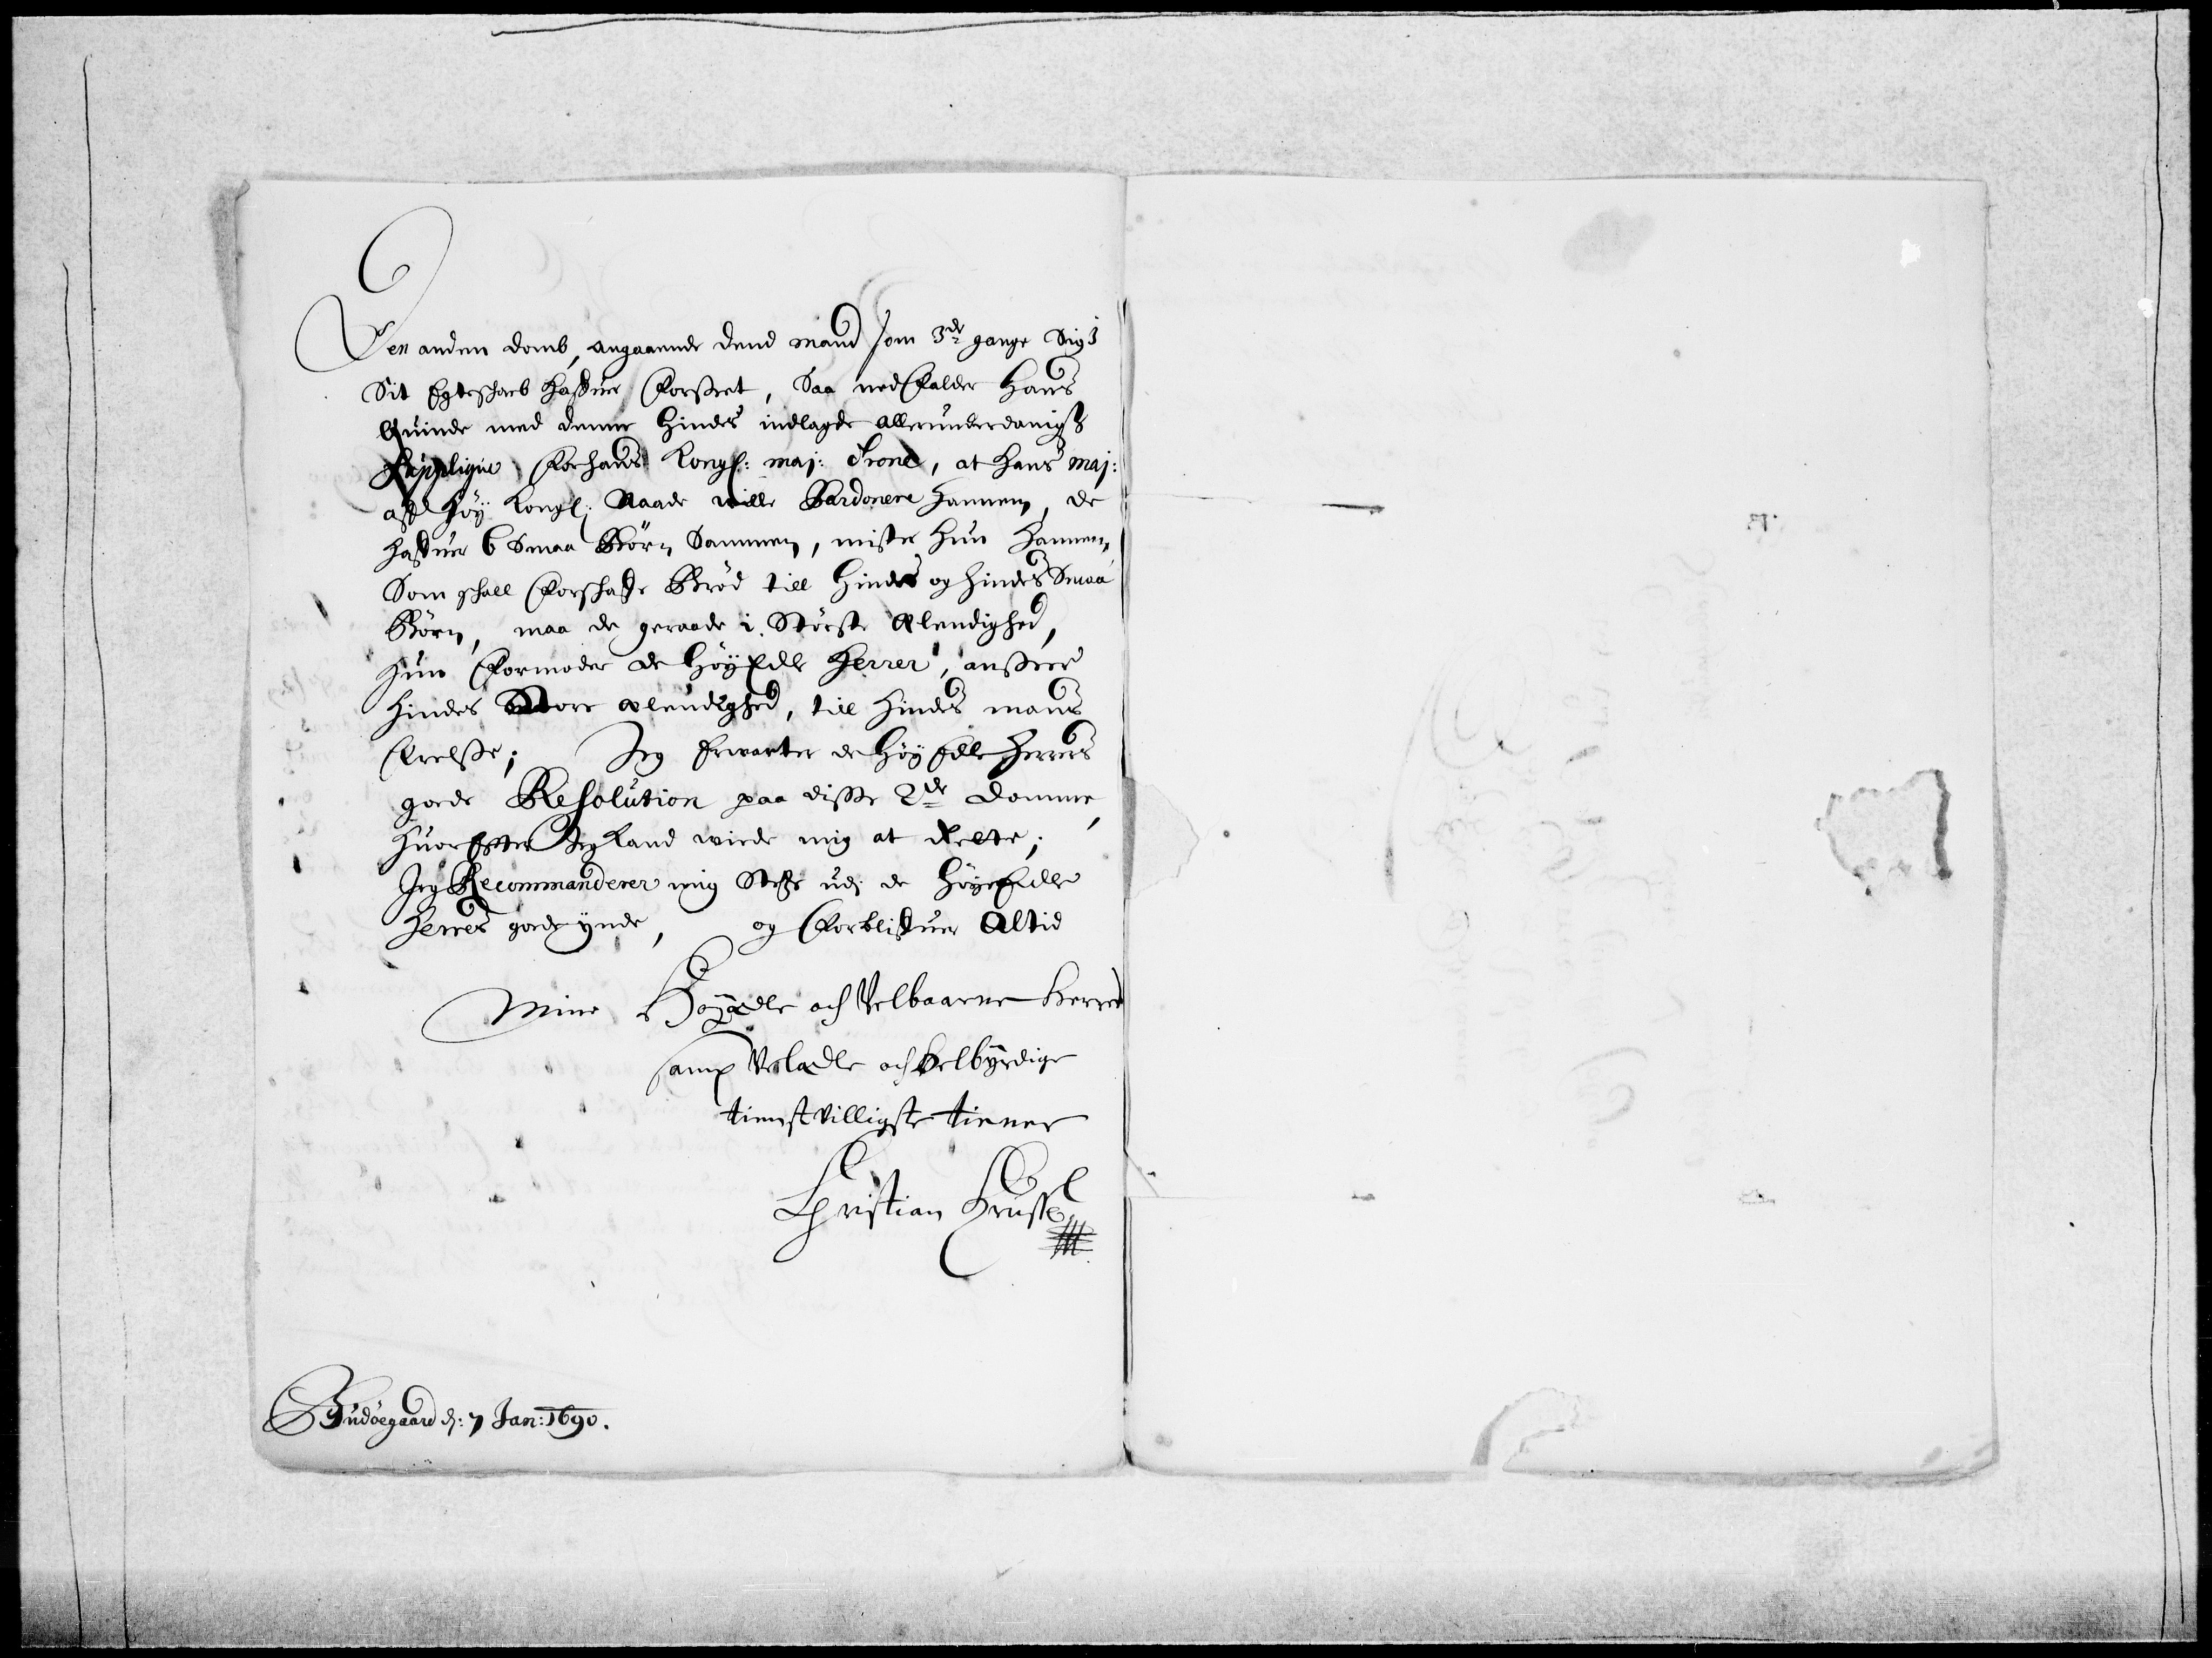 Den anden domb, angaaende dend mand som 3de gange Sig i
Sit Egteschab hafuer forseet, Saa nedfalder Hans
Quinde med denne Hindes indlagde allerunderdanigst
Supplique for hans Kongl: maj: Trone, at hans maj:
aff Høy Kongl: Naade wille Pardonere hannem, de
hafuer 6 Smaa Børn Sammen, mister hun hannem,
Som schall forschafe Brød till Hindes og hindes Smaa
Børn, maa de geraade i Største Elendighed,
hun formoder de HøyEdle Herrer, anseer
hindes Store Elendighed, till hindes mands
frelsse; Jeg Erwarter de HøyEdle Herrers
gode Resolution paa disse 2de Domme,
huorefter Jeg kand wide mig at Rette;
Jeg Recommanderer mig Stetze udj de HøyeEdle
Herrers gode ynde, og forblifuer Altid
Mine Høyædle och Velbaarne Herrer
samp Velædle och Velbyrdige
tienstvilligste tiener
Christian Krusse
Budøegaard d: 7 Jan: 1690.